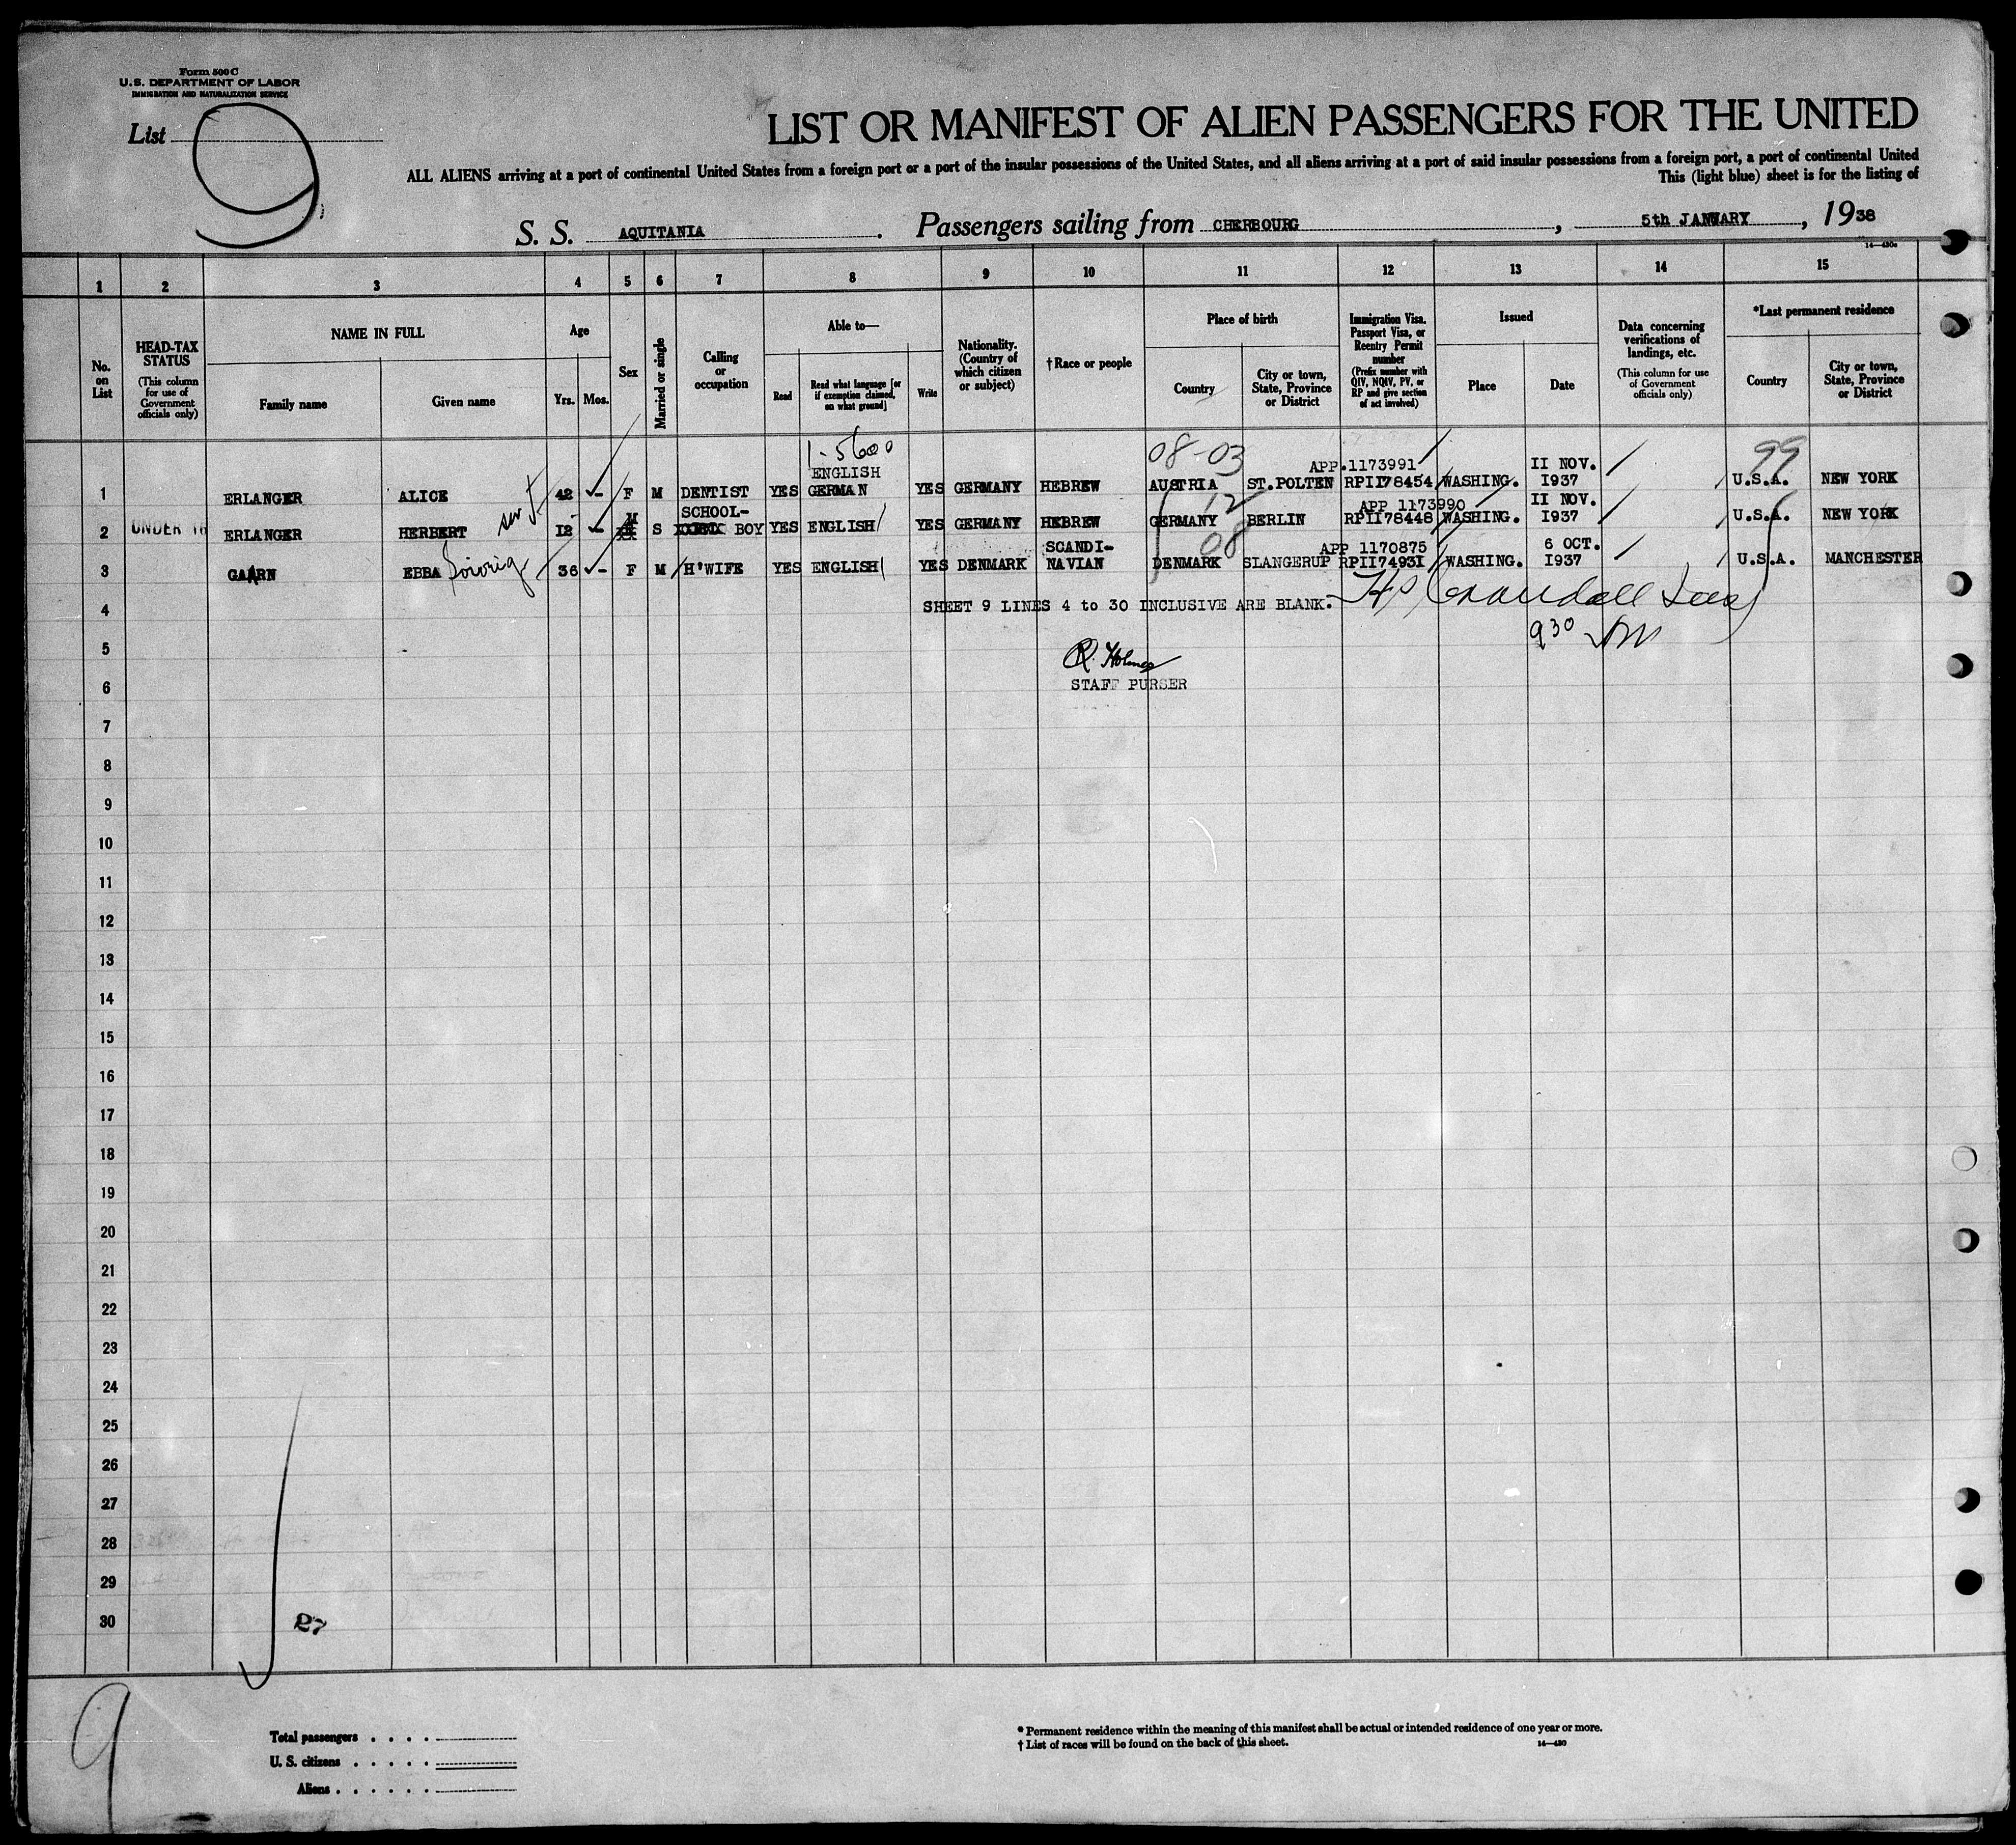 Form 500 C
U.S. DEPARTMENT OF LABOR
IMMIGRATION AND NATURALIZATION SERVICE
List 9
LIST OR MANIFEST OF ALIEN PASSENGERS FOR THE UNITED
ALL ALIENS arriving at a port of continental United States from a foreign port or a port of the insular possessions of the United States, and all aliens arriving at a port of said insular possessions from a foreign port, a port of continental United
This (light blue) sheet is for the listing of
S. S. AQUITANIA. Passengers sailing from CHERBOURG, 5th JANUARY, 1938
14—430a
1 2 3 4 5 6 7 8 9 10 11 12 13 14 15
No. on List
HEAD-TAX STATUS
(This column for use of Government officials only)
NAME IN FULL
Family name
Given name
Age
Yrs. Mos.
Sex
Married or single
Calling or occupation
Able to—
Read
Read what language [or if exemption claimed, on what ground]
Write
Nationality. (Country of which citizen or subject)
† Race or people
Place of birth
Country
City or town, State, Province or District
Immigration Visa, Passport Visa, or Reentry Permit number
(Prefix number with QIV, NQIV, PV, or RP and give section of act involved)
Issued
Place
Date
Data concerning verifications of landings, etc.
(This column for use of Government officials only)
*Last permanent residence
Country
City or town, State, Province or District
1-5600 08-03 99
ENGLISH APP.1173991 II NOV.
1 ERLANGER ALICE 42 - F M DENTIST YES GERMAN YES GERMANY HEBREW AUSTRIA ST.POLTEN RPII78454 WASHING. I937 U.S.A. NEW YORK
SCHOOL- M 12 APP 1173990 II NOV.
2 UNDER 16 ERLANGER HERBERT I2 - S BOY YES ENGLISH YES GERMANY HEBREW GERMANY BERLIN RPII78448 WASHING. I937 U.S.A. NEW YORK
SCANDI- 08 APP 1170875 6 OCT.
3 GAARN EBBA 36 - F M H'WIFE YES ENGLISH YES DENMARK NAVIAN DENMARK SLANGERUP RPII7493I WASHING. I937 U.S.A. MANCHESTER
4 SHEET 9 LINES 4 to 30 INCLUSIVE ARE BLANK. Crandall
5 930
R. Holmes
6 STAFF PURSER
7
8
9
10
11
12
13
14
15
16
17
18
19
20
21
22
23
24
25
26
27
28
29
30 27
9
Total passengers . . . .
U. S. citizens . . . . .
Aliens . . . . . .
* Permanent residence within the meaning of this manifest shall be actual or intended residence of one year or more.
† List of races will be found on the back of this sheet.
14—430